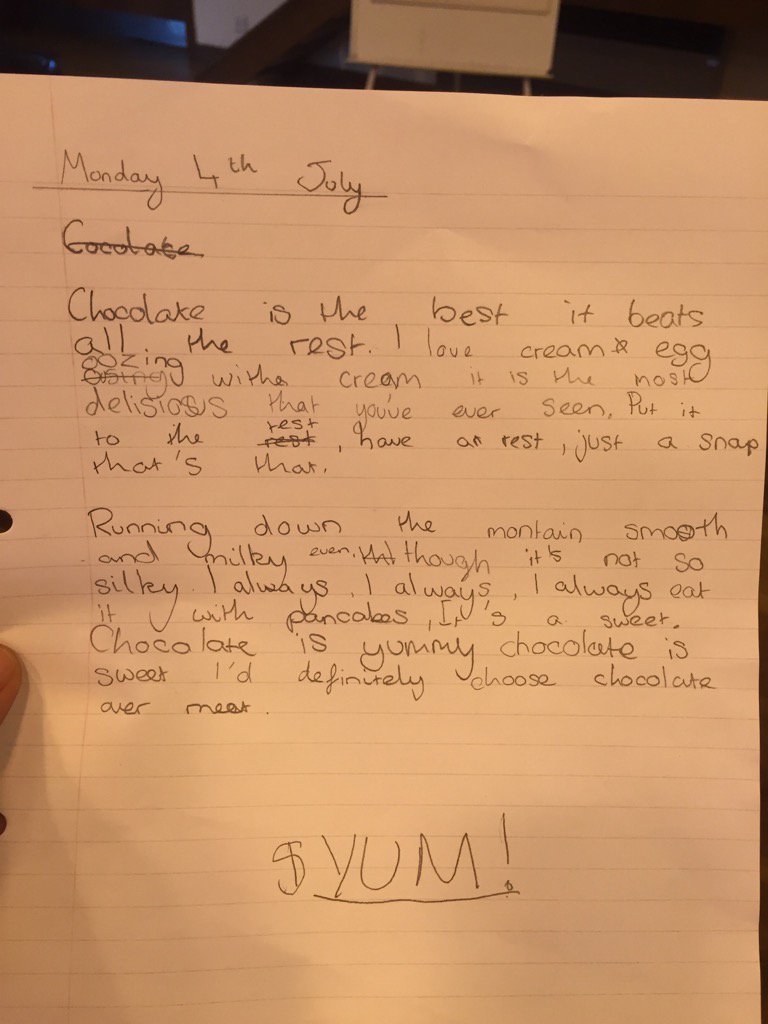 Monday 4th July
Cocolate
Chocolate is the best it beats
all the rest. I love cream egg
oozing
withe cream it is the most
delisioius that you've ever seen. Put it
rest
to the rest, have a rest, just a snap
that's that.
Running down the montain smooth
and milky even though it's not so
silky. I always, I always, I always eat
it with pancakes, It's a sweet.
Chocolate is yummy chocolate is
sweet I'd definitely choose chocolate
over meat.
YUM!